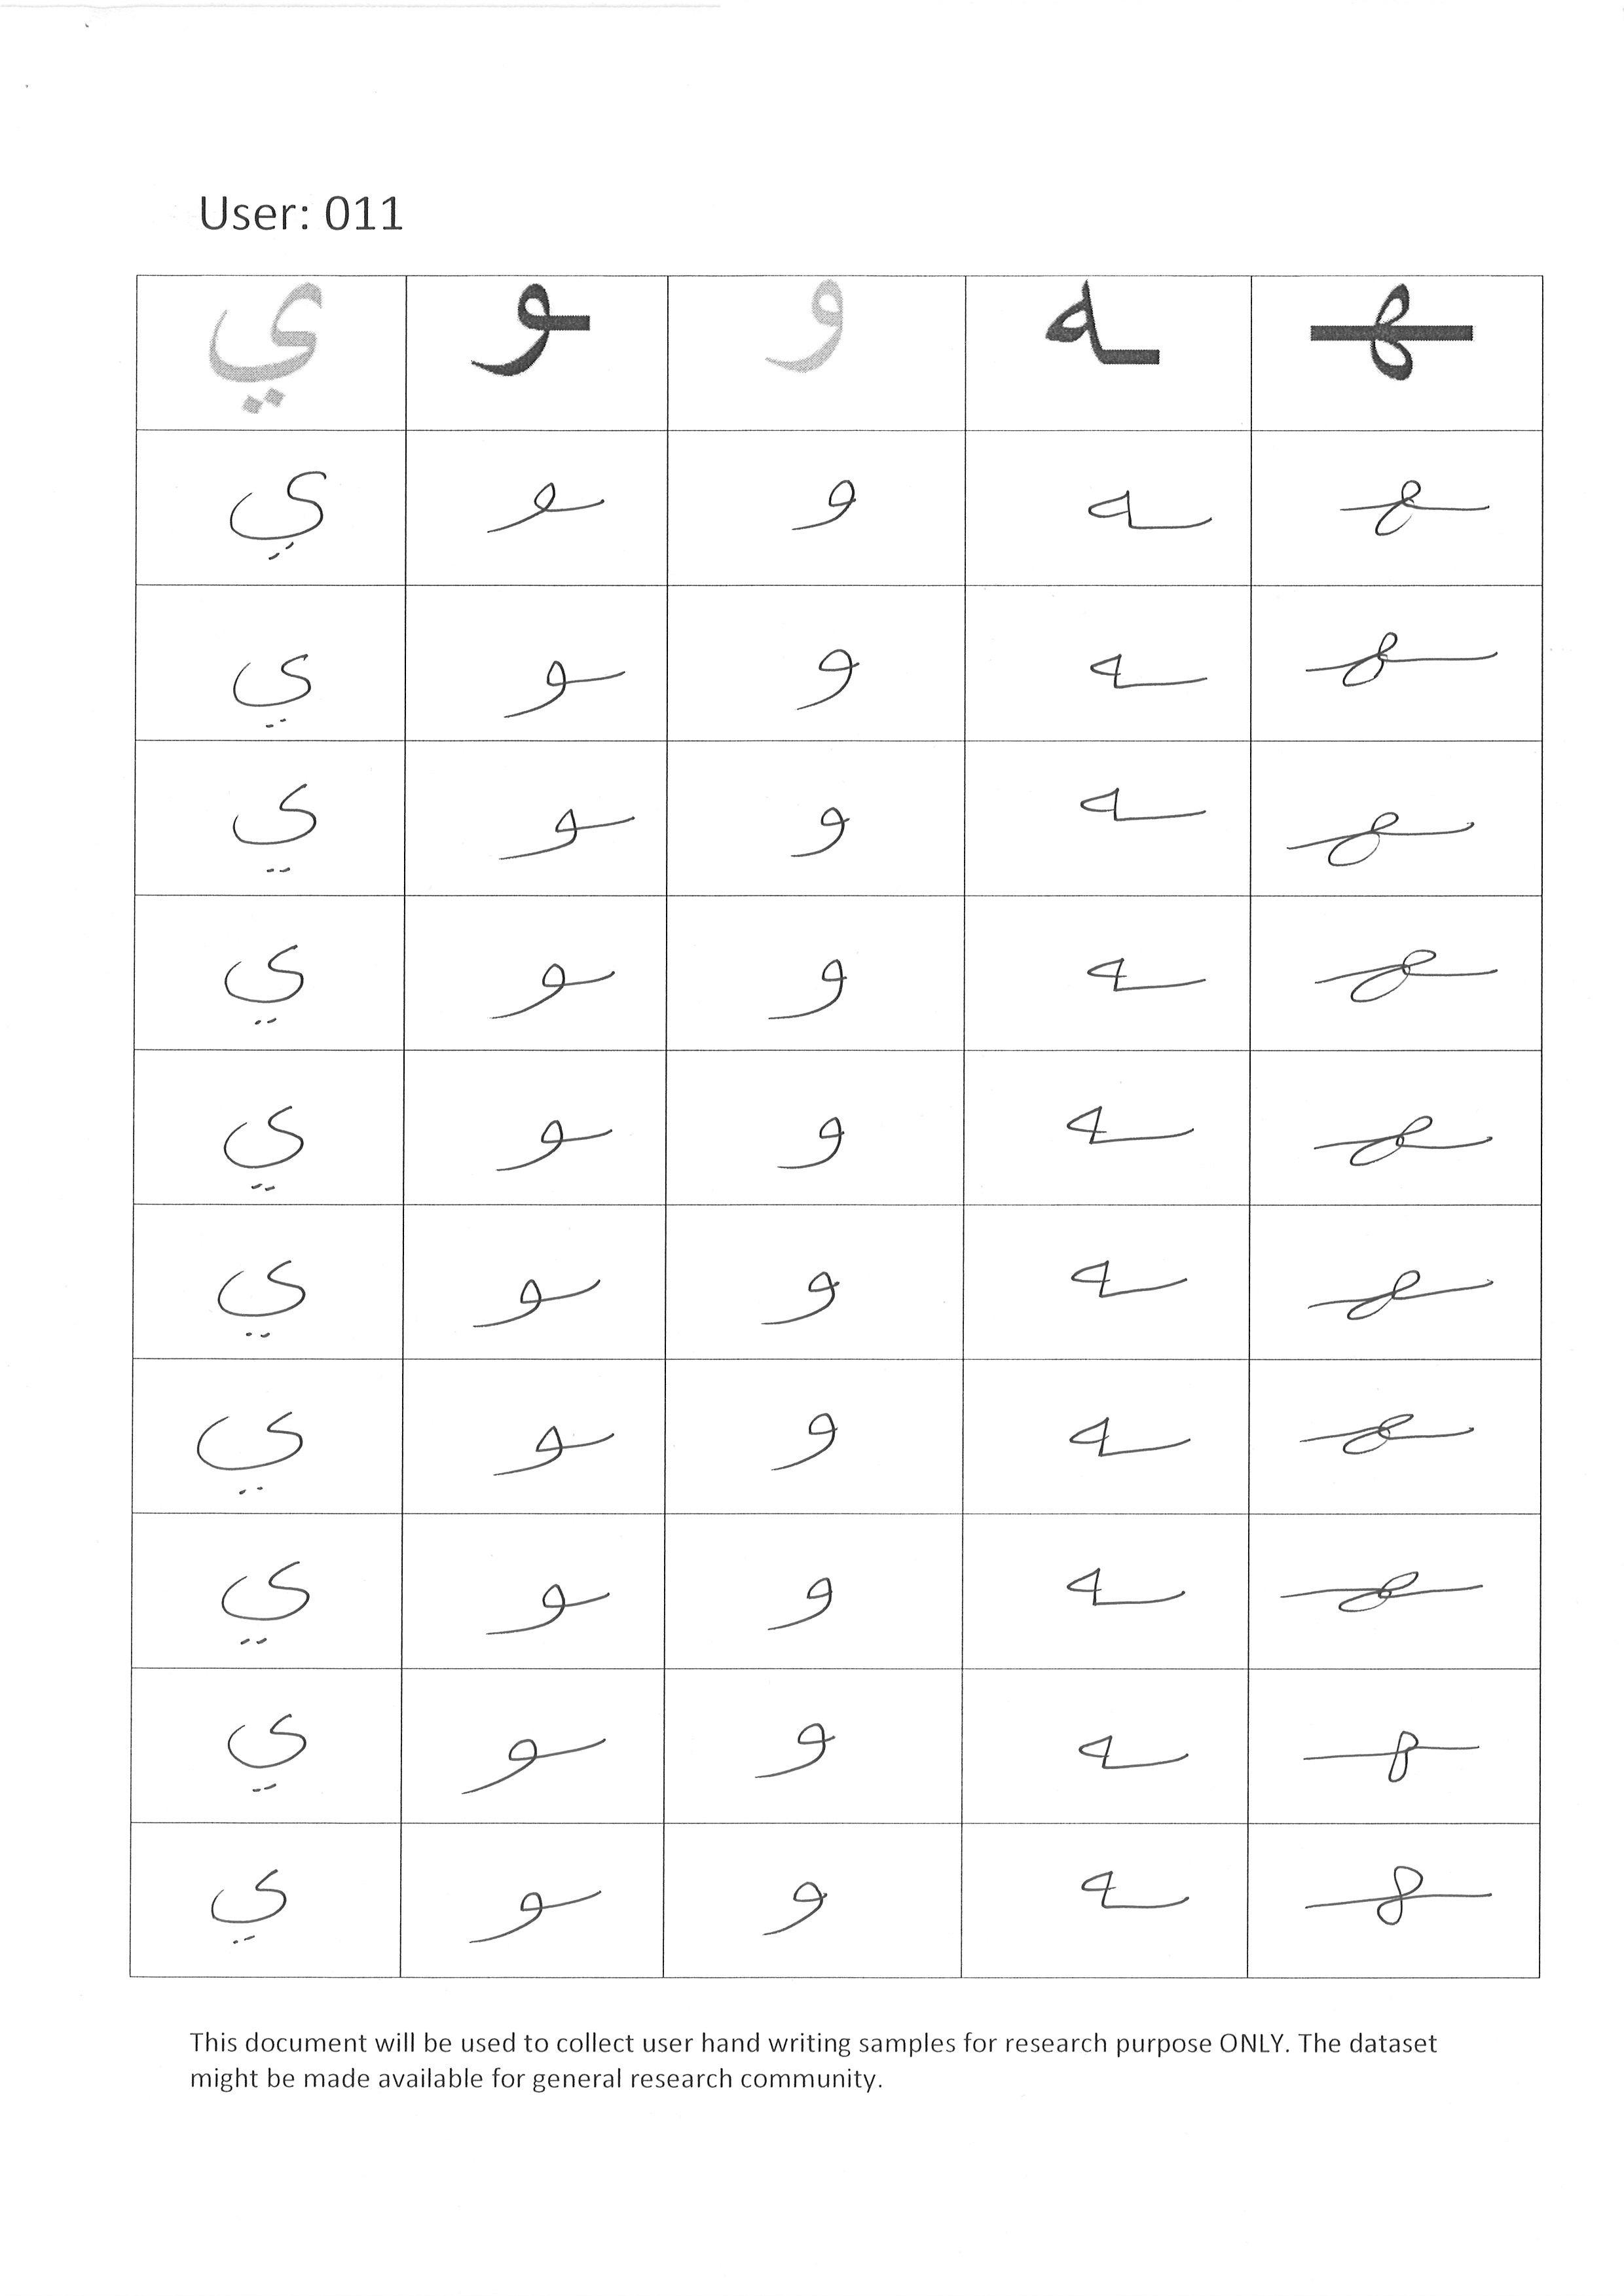 User: 011
ي ـو و ـه ـهـ
ي ـو و ـه ـهـ
ي ـو و ـه ـهـ
ي ـو و ـه ـهـ
ي ـو و ـه ـهـ
ي ـو و ـه ـهـ
ي ـو و ـه ـهـ
ي ـو و ـه ـهـ
ي ـو و ـه ـهـ
ي ـو و ـه ـهـ
ي ـو و ـه ـهـ
This document will be used to collect user hand writing samples for research purpose ONLY. The dataset
might be made available for general research community.